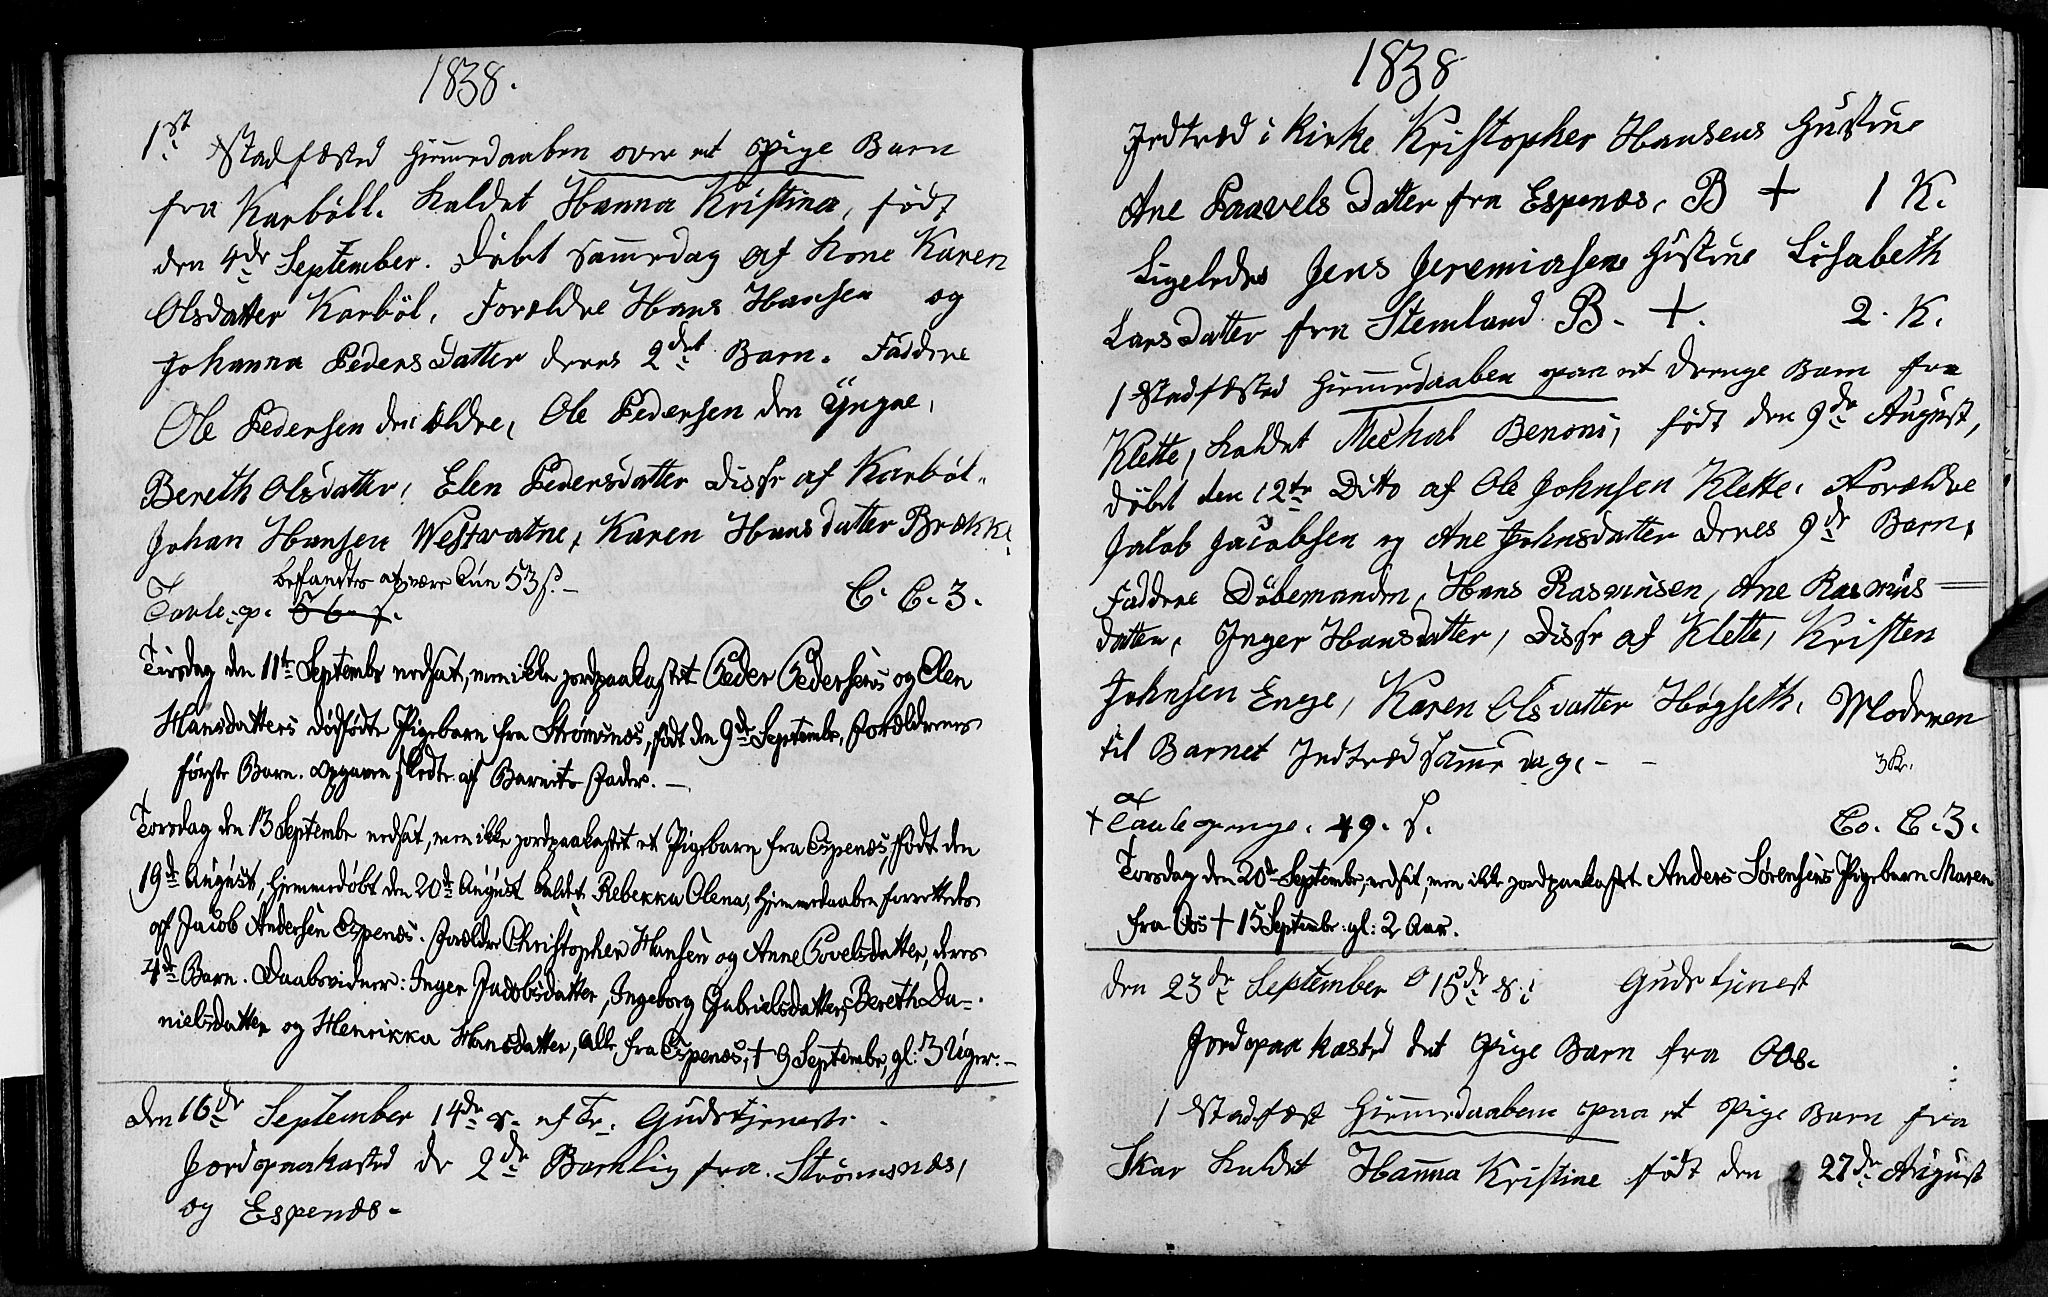 1838.
1st Stadfæsted Hjemmedaaben over et Pige Barn
fra Karböll. kaldet Hanna Kristina, födt
den 4de September. Döbt samedag af Kone Karen
Olsdatter Karböl, Forældre Hans Hansen og
Johanna Peders Datter deres 2det Barn. Faddere
Ole Pedersen den ældre, Ole Pedersen den Yngre,
Bereth Olsdatter, Elen Pedersdatter Disse af Karböl.
Johan Hansen Westvatne, Karen Hans datter Brække.
befandtes at være kun 53 s. –
Tavle p. 56 s. C. C. 3.
Tirsdag den 11te Septembr nedsat, men ikke jordpaakastet Peder Pedersens og Elen
Hansdatters dödfödte Pigebarn fra Strömsnæs, födt den 9de Septembr, Forældrenes
förste Barn. Opgaven skedte af Barnets Fader. –
Torsdag den 13 Septembr nedsat, men ikke jordpaakastet et Pigebarn fra Espenæs, födt den
19de August, hjemmedöbt den 20de August kaldet Rebekka Olena, hjemmedaaben forrettedes
af Jacob Andersen Espenæs. Forældre Christopher Hansen og Anne Povelsdatter, deres
4de Barn. Daabsvidner: Inger Jacobsdatter, Ingeborg Gabrielsdatter, Bereth Da-
nielsdatter og Henrikka Hansdatter, alle fra Espenæs, + 9 Septembr, gl: 3 Uger. –
Den 16de September 14de S. ef Tr. Gudstjeneste.
Jordpaakasted de 2de Barnlig fra Strömsnæs,
og Espenæs.
1838
Indtræd i Kirke Kristopher Hansens Hustrue
Ane Paavels Datter fra Espenæs. B + 1 K.
Ligeledes Jens Jeremiasens Hustrue Lisabeth
Lars Datter fra Stemland B. +. 2. K.
1 Stadfæsted Hjemmedaaben paa et Drenge Barn fra
Klette, kaldet Mechal Benoni, födt den 9de August,
döbt den 12te Dito af Ole Johnsen Klette. Forældre
Jakob Jacobsen og Ane Johnsdatter deres 9de Barn,
Faddere Döbemanden, Hans Rasmusen, Ane Rasmus
datter, Inger Hansdatter, Disse af Klette, Kristen
Johnsen Enge, Karen Olsdatter Högseth. Moderen
til Barnet Indtræd samme dag. – –
3 K.
+ Tavle penge. 49. s. Co. C. 3.
Torsdag den 20de Septembr, nedsat, men ikke jordpaakastet Anders Sörensens Pigebarn Maren
fra Oos + 15 Septembr gl: 2 Aar.
den 23de September 15de S. Gudstjenest
Jordpaakasted det Pige Barn fra Oos.
1 Stadfæst Hjemmedaaben paa et Pige Barn fra
Skar kaldet Hanna Kristine födt den 27de August